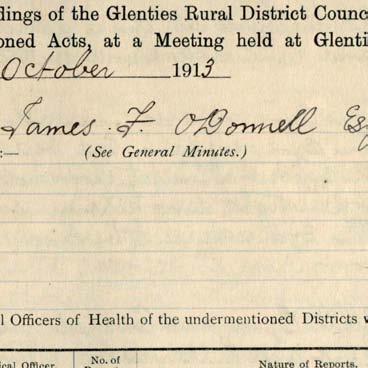 dings of the Glenties Rural District Counc
oned Acts, at a Meeting held at Glenti
October 1913
James F. O'Donnell Esq
:— (See General Minutes.)
l Officers of Health of the undermentioned Districts w
ical Officer. No. of Nature of Reports.